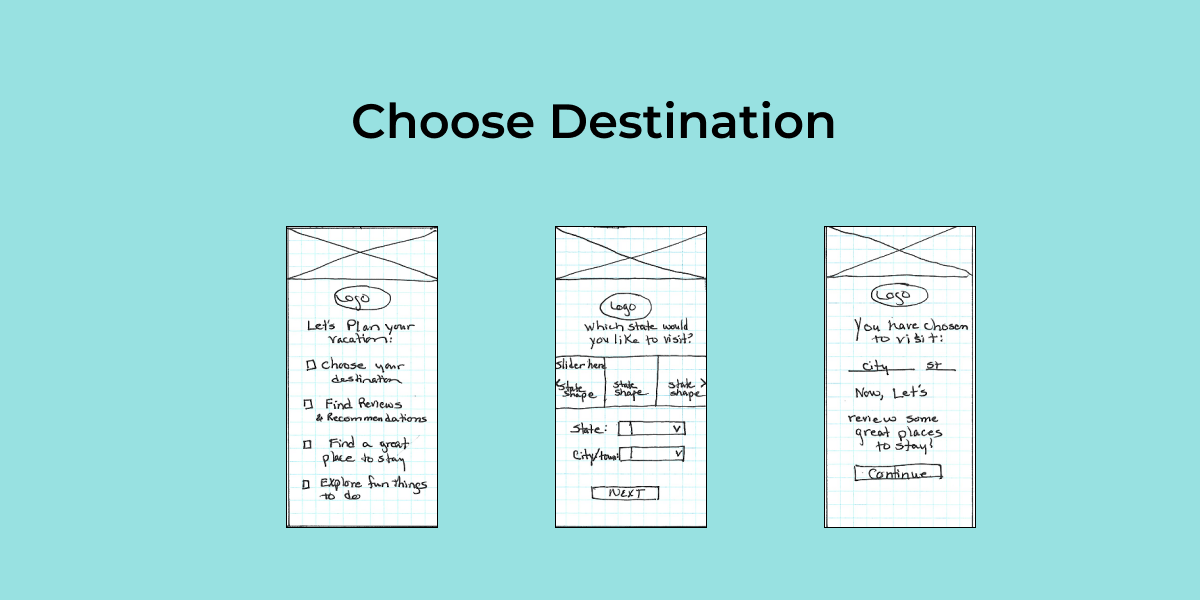 Choose Destination
Logo
Let's Plan your
vacation:
Choose your
destination
Find Reviews
& Recommendations
Find a great
place to stay
Explore fun things
to do
Logo
which state would
you like to visit?
Slider here
< State shape
State shape
State shape >
State:
City/town:
NEXT
Logo
You have chosen
to visit:
city st
Now, Let's
review some
great places
to stay!
Continue